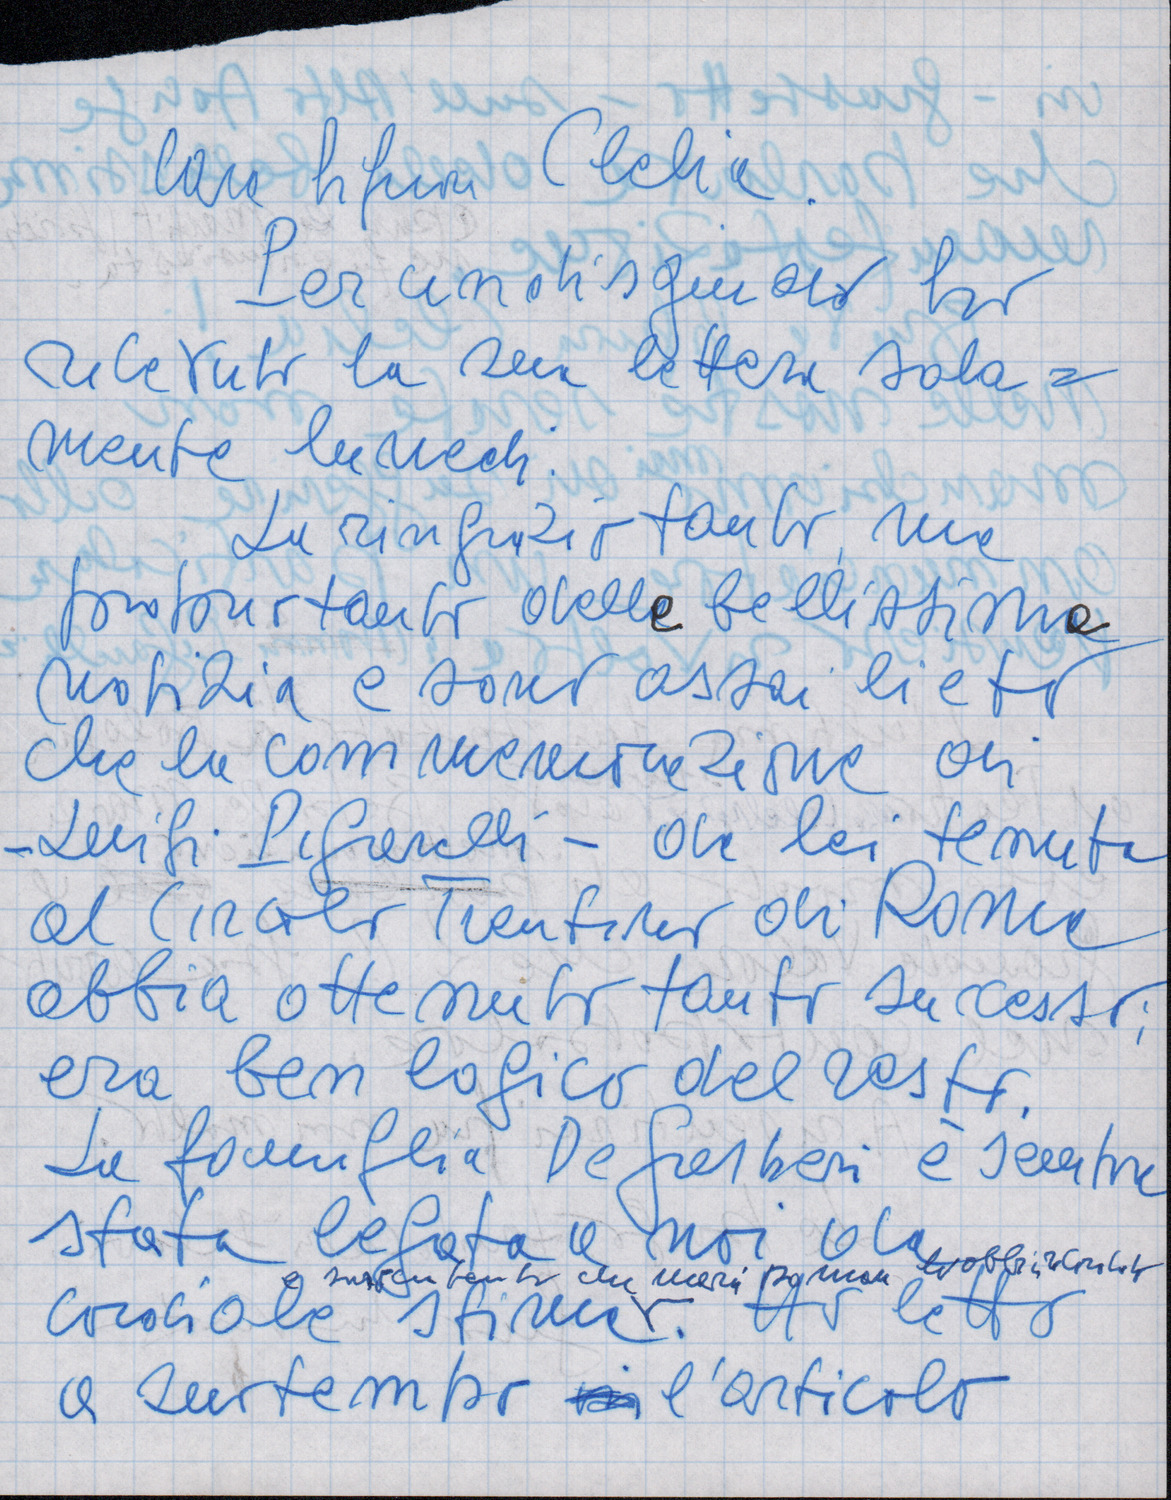 Cara Signora Clelia.
Per un disguido ho
ricevuto la sua lettera sola=
mente lunedì.
La ringrazio tanto, ma
proprio tanto delle bellissime
notizia e sono assai lieto
che la commemorazione di
- Luigi Pigarelli - da lei tenuta
al Circolo Trentino di Roma
abbia ottenuto tanto successo;
era ben logico del resto.
La famiglia Degasperi è sempre
stata legata a noi da
cordiale stima. Ho letto
a suo tempo l'articolo